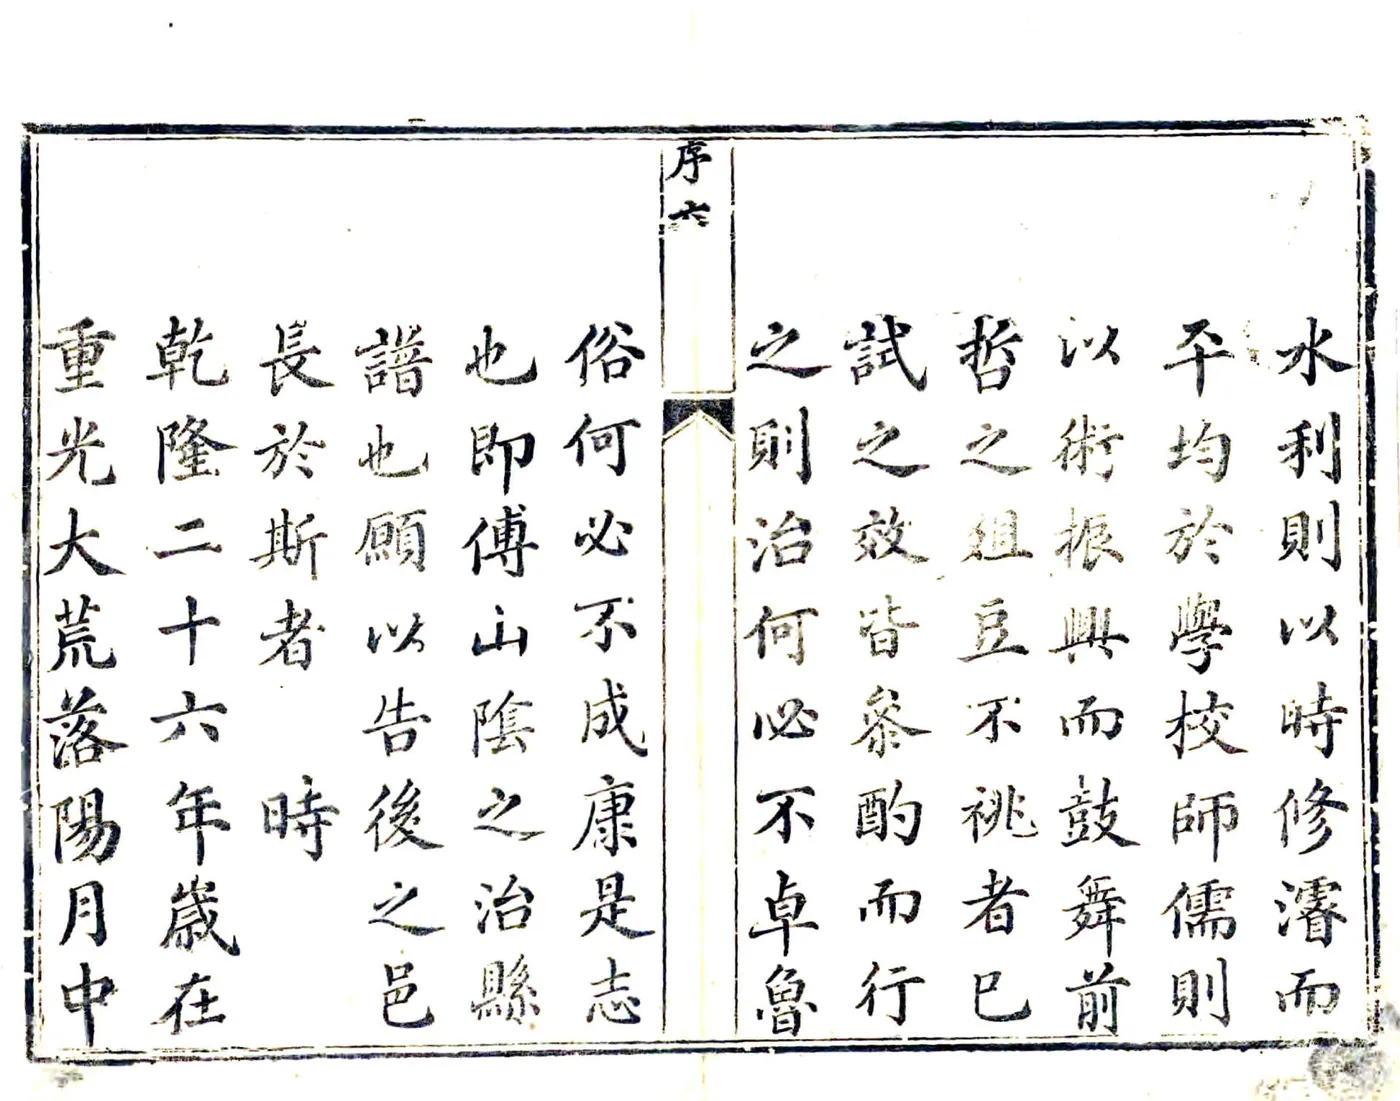 水利則以時修濬而
平均於學校師儒則
以術振興而鼓舞前
哲之俎豆不祧者已
試之效皆叅酌而行
之則治何必不卓魯
序六
俗何必不成康是志
也即傅山陰之治縣
譜也願以告後之邑
長於斯者 時
乾隆二十六年歲在
重光大荒落陽月中